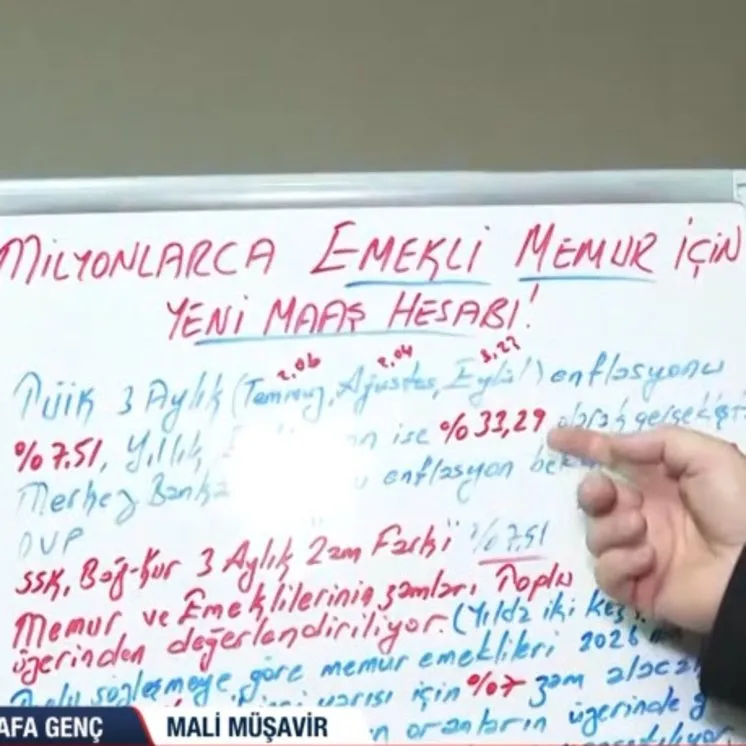 MİLYONLARCA EMEKLİ MEMUR İÇİN
YENİ MAAŞ HESABI!
2,06 2,04 3,23
TÜİK 3 Aylık (Temmuz, Ağustos, Eylül) enflasyonu
%7.51, Yıllık ise %33,29 olarak gerçekleşti
Merkez Bank enflasyon bek
OVP
SSK, Bağ-Kur 3 Aylık Zam Farkı %7.51
Memur ve Emeklilerinin zamları Toplu
üzerinden değerlendiriliyor. (Yılda iki kez
Toplu sözleşmeye göre memur emeklileri 2026
yarısı için %7 zam alacak
oranların üzerinde
AFA GENÇ MALİ MÜŞAVİR